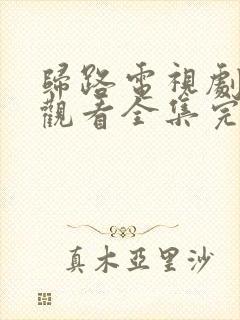 歸路電視劇
觀看全集完
真木亞里沙